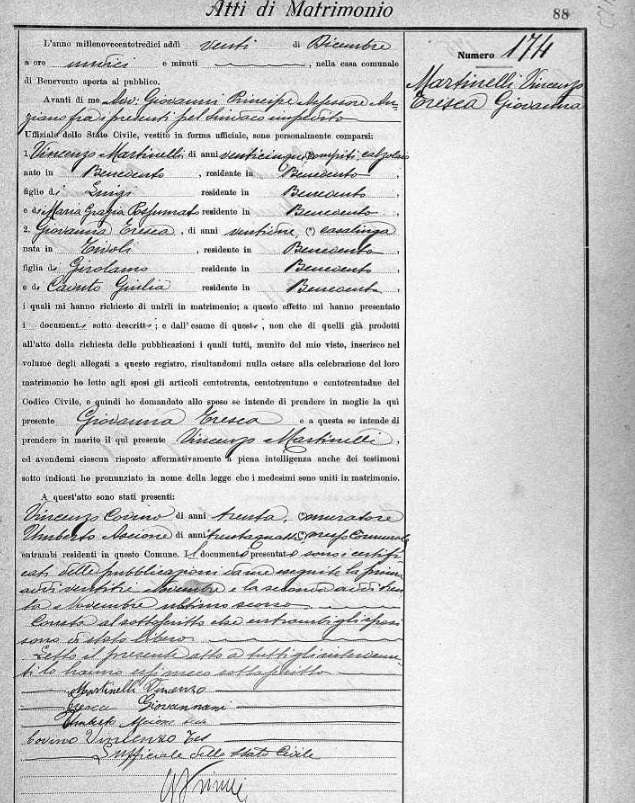 Atti di Matrimonio
88
Numero 174
Martinelli Vincenzo
Tresca Giovanna
L'anno millenovecentotredici addì venti di Dicembre
a ore undici e minuti , nella casa comunale
di Benevento aperta al pubblico.
Avanti di me Avv: Giovanni Principe Assessore An-
ziano fra i presenti pel Sindaco impedito
Uffiziale dello Stato Civile, vestito in forma ufficiale, sono personalmente comparsi:
1. Vincenzo Martinelli di anni venticinque compiti, calzolaio
nato in Benevento , residente in Benevento ,
figlio di Luigi residente in Benevento
e di Maria Grazia Posfumato residente in Benevento
2. Giovanna Tresca , di anni ventuno, (*) casalinga
nata in Tivoli , residente in Benevento ,
figlia di Girolamo residente in Benevento ,
e di Caputo Giulia residente in Benevento ,
i quali mi hanno richiesto di unirli in matrimonio; a questo effetto mi hanno presentato
i documenti sotto descritti; e dall'esame di questi, non che di quelli già prodotti
all'atto della richiesta delle pubblicazioni i quali tutti, munito del mio visto, inserisco nel
volume degli allegati a questo registro, risultandomi nulla ostare alla celebrazione del loro
matrimonio ho letto agli sposi gli articoli centotrenta, centotrentuno e centotrentadue del
Codico Civile, e quindi ho domandato allo sposo se intende di prendere in moglie la quì
presente Giovanna Tresca e a questa se intende di
prendere in marito il quì presente Vincenzo Martinelli ,
ed avendomi ciascun risposto affermativamente a piena intelligenza anche dei testimoni
sotto indicati ho pronunziato in nome della legge che i medesimi sono uniti in matrimonio.
A quest'atto sono stati presenti:
Vincenzo Covino di anni trenta, (*) muratore
Umberto Ascione di anni trentaquattro (*) messo Comunale
entrambi residenti in questo Comune. I documenti presentati sono i certifi-
cati delle pubblicazioni da me eseguite la prima
addì ventitre Novembre e la seconda addì tren-
ta Novembre ultimo scorso
Consta al sottoscritto che entrambi gli sposi
sono di stato libero.
Letto il presente atto a tutti gli intervenu-
ti lo hanno essi meco sottoscritto
Martinelli Vincenzo
Tresca Giovannani
Umberto Ascione
Covino Vincenzo Tes
L'uffiziale dello Stato Civile